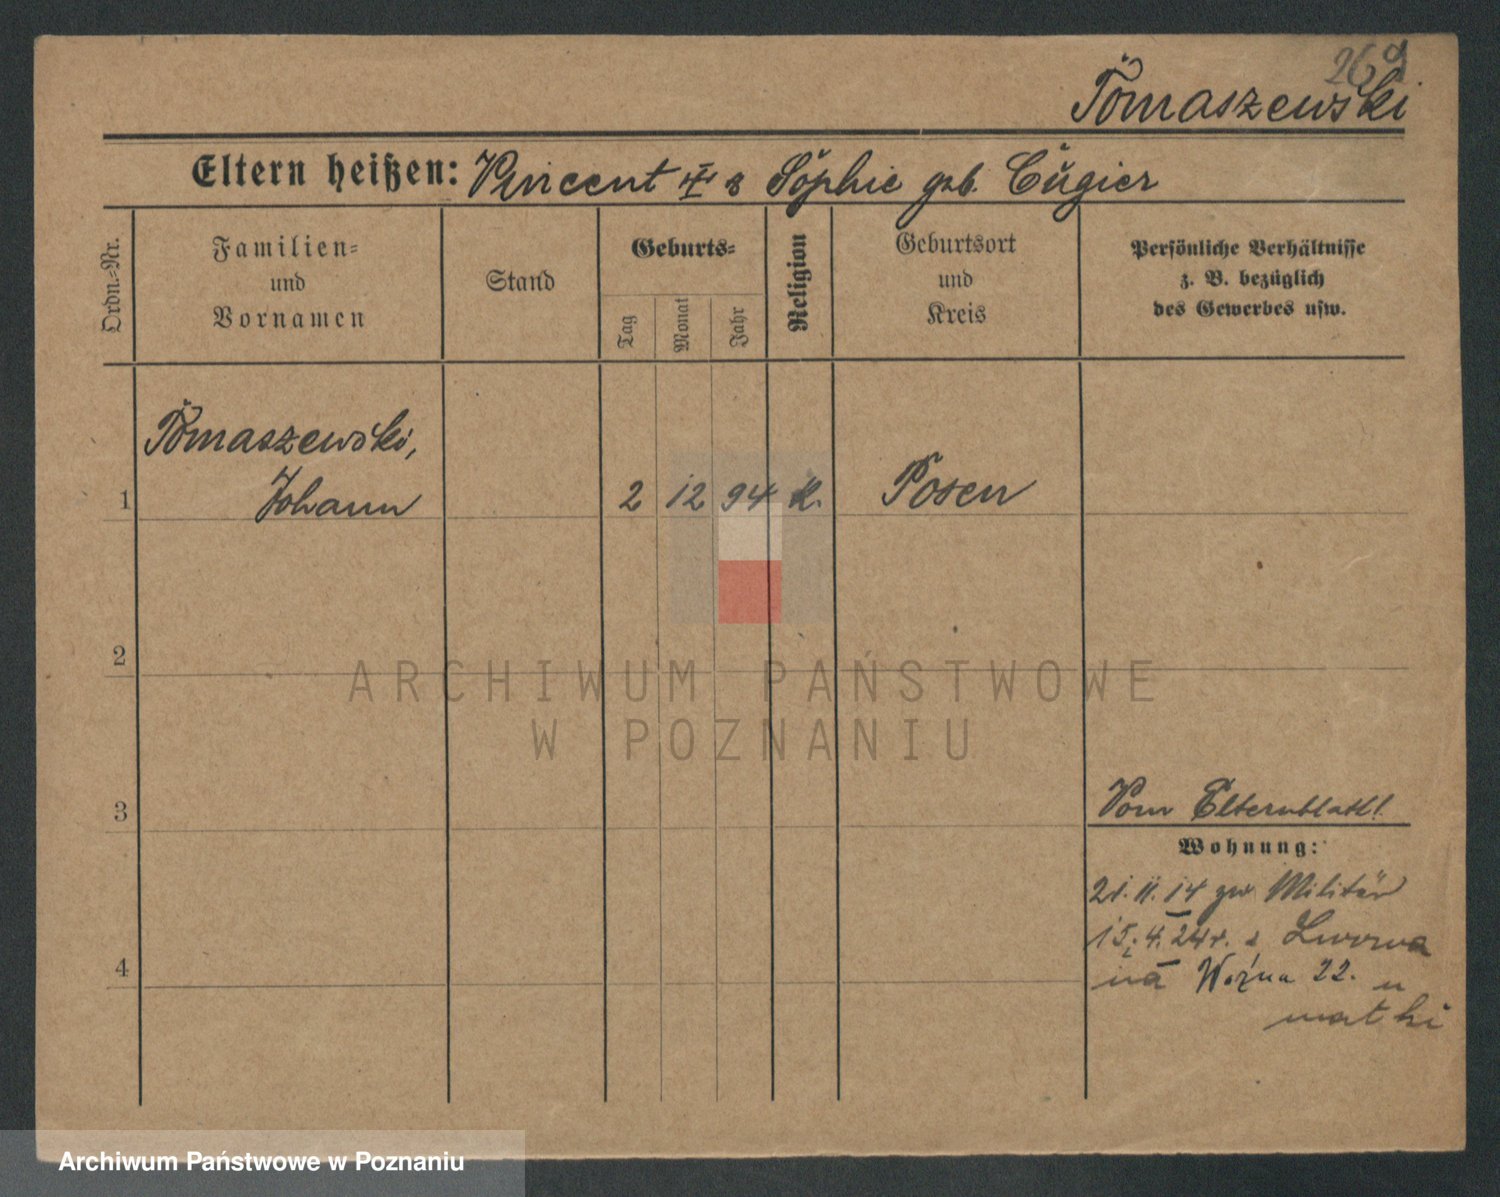 269
Tomaszewski
Eltern heißen: Vincent u. Sophie geb. Cugier
Ordn.=Nr.
Familien= und Vornamen
Stand
Geburts=
Tag
Monat
Jahr
Religion
Geburtsort und Kreis
Persönliche Verhältnisse
z. B. bezüglich
des Gewerbes usw.
Tomaszewski,
1 Johann 2 12 94 k. Posen
2
3
4
Vom Elternblatt!
Wohnung:
21.11.14 zum Militär
15.4.24 r. z Lwowa
na Woźna 22. u
matki
ARCHIWUM PAŃSTWOWE
W POZNANIU
Archiwum Państwowe w Poznaniu